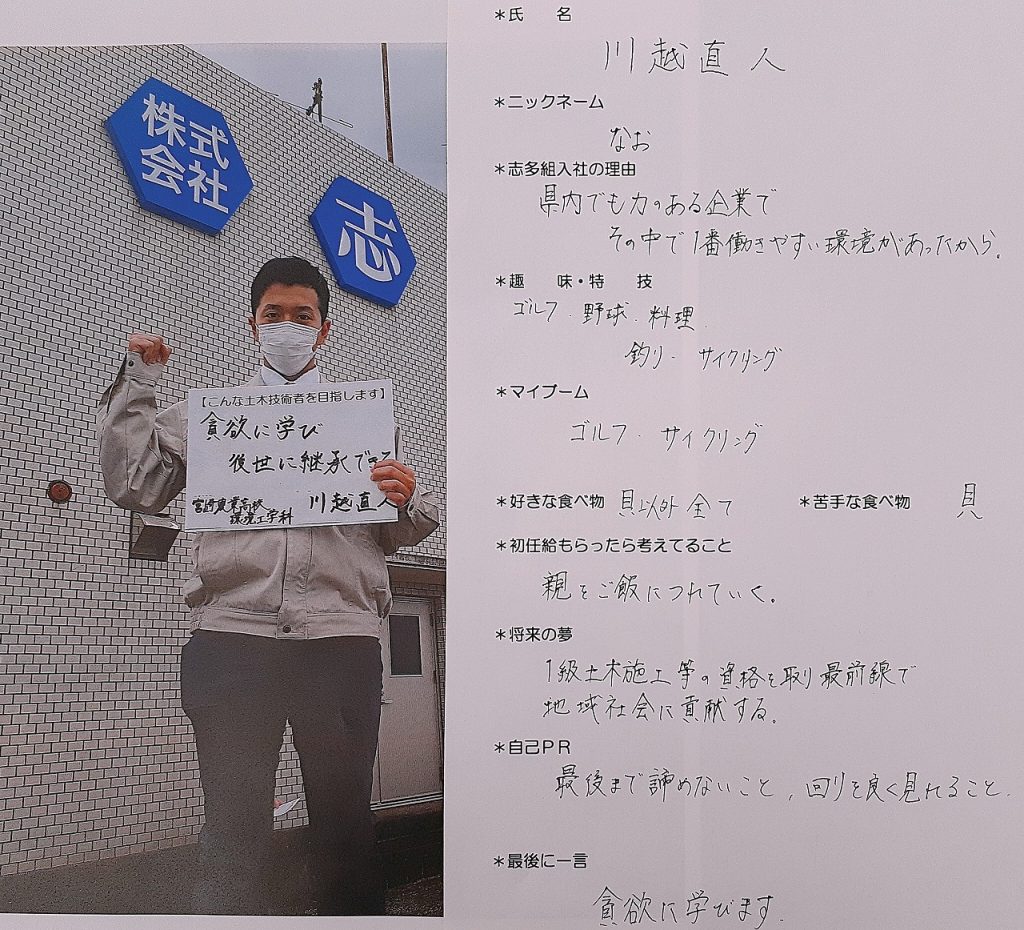 株式
会社
志
【こんな土木技術者を目指します】
貪欲に学び
後世に継承できる
宮崎農業高校
環境工学科
川越直人
＊氏　名
川越直人
＊ニックネーム
なお
＊志多組入社の理由
県内でも力のある企業で
その中で1番働きやすい環境があったから。
＊趣　味・特　技
ゴルフ．野球．料理．
釣り．サイクリング
＊マイブーム
ゴルフ．サイクリング
＊好きな食べ物 貝以外全て ＊苦手な食べ物 貝
＊初任給もらったら考えてること
親をご飯につれていく。
＊将来の夢
1級土木施工等の資格を取り最前線で
地域社会に貢献する。
＊自己ＰＲ
最後まで諦めないこと，回りを良く見れること．
＊最後に一言
貪欲に学びます．